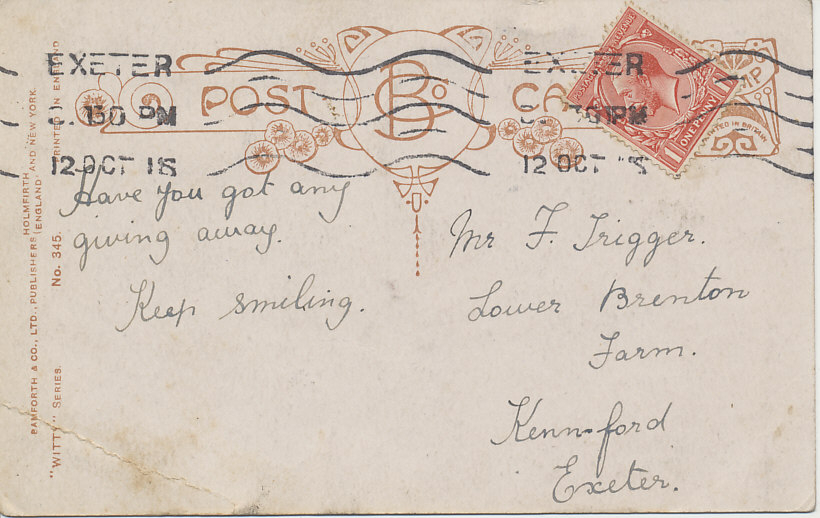 EXETER
1 30 PM
12 OCT 18
EXETER
30 PM
12 OCT 18
POST CA
B Co
ONE PENNY
PRINTED IN BRITAIN
Have you got any
giving away.
Keep smiling.
Mr F. Trigger.
Lower Brenton
Farm.
Kenn-ford
Exeter.
BAMFORTH & CO., LTD., PUBLISHERS (HOLMFIRTH ENGLAND) AND NEW YORK.
"WITTY" SERIES. No. 345. PRINTED IN ENGLAND